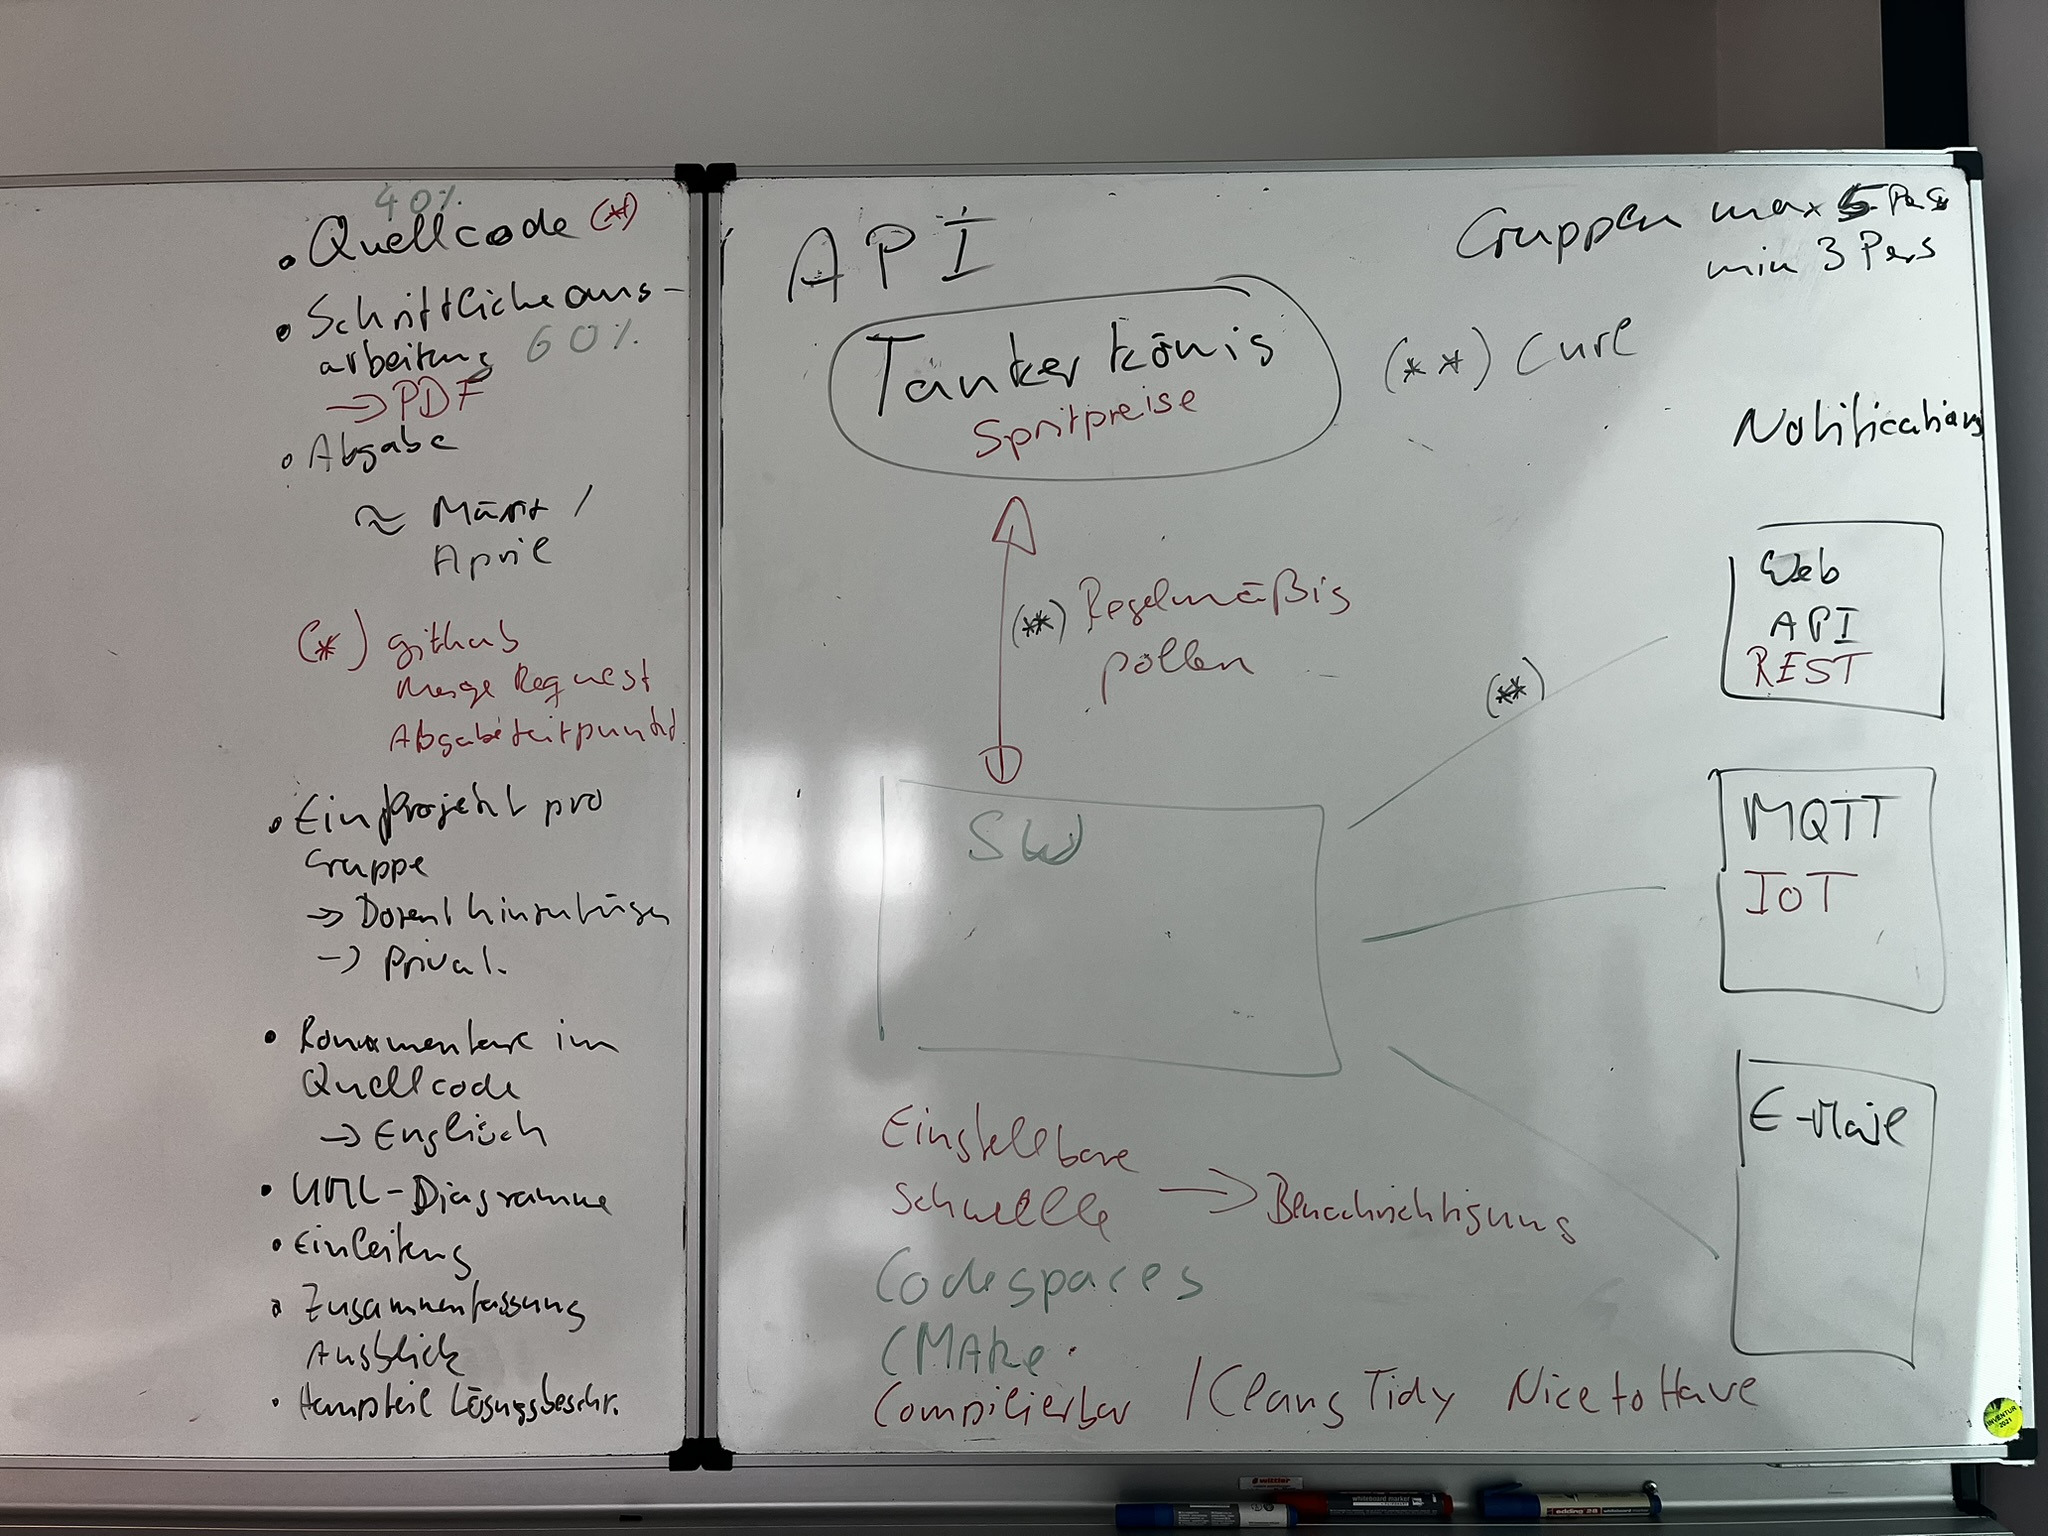 40%
• Quellcode (*)
• Schriftliche aus-
arbeitung 60%
→ PDF
• Abgabe
≈ März /
April
(*) github
Merge Request
Abgabezeitpunkt
• Ein Projekt pro
Gruppe
→ Dozent hinzufügen
→ Privat.
• Kommentare im
Quellcode
→ Englisch
• UML-Diagramme
• Einleitung
• Zusammenfassung
Ausblick
• Hauptteil Lösungsbeschr.
API
Gruppen max 5 Pers
min 3 Pers
Tankerkönig
Spritpreise
(**) Curl
Notifications
(**) Regelmäßig
pollen
(**)
Web
API
REST
SW
MQTT
IOT
E-Mail
Einstellbare
Schwelle → Benachrichtigung
Codespaces
CMAke
Compilierbar / Clang Tidy Nice to Have
INVENTUR
2021
wittler
whiteboard marker
edding 28 whiteboard marker